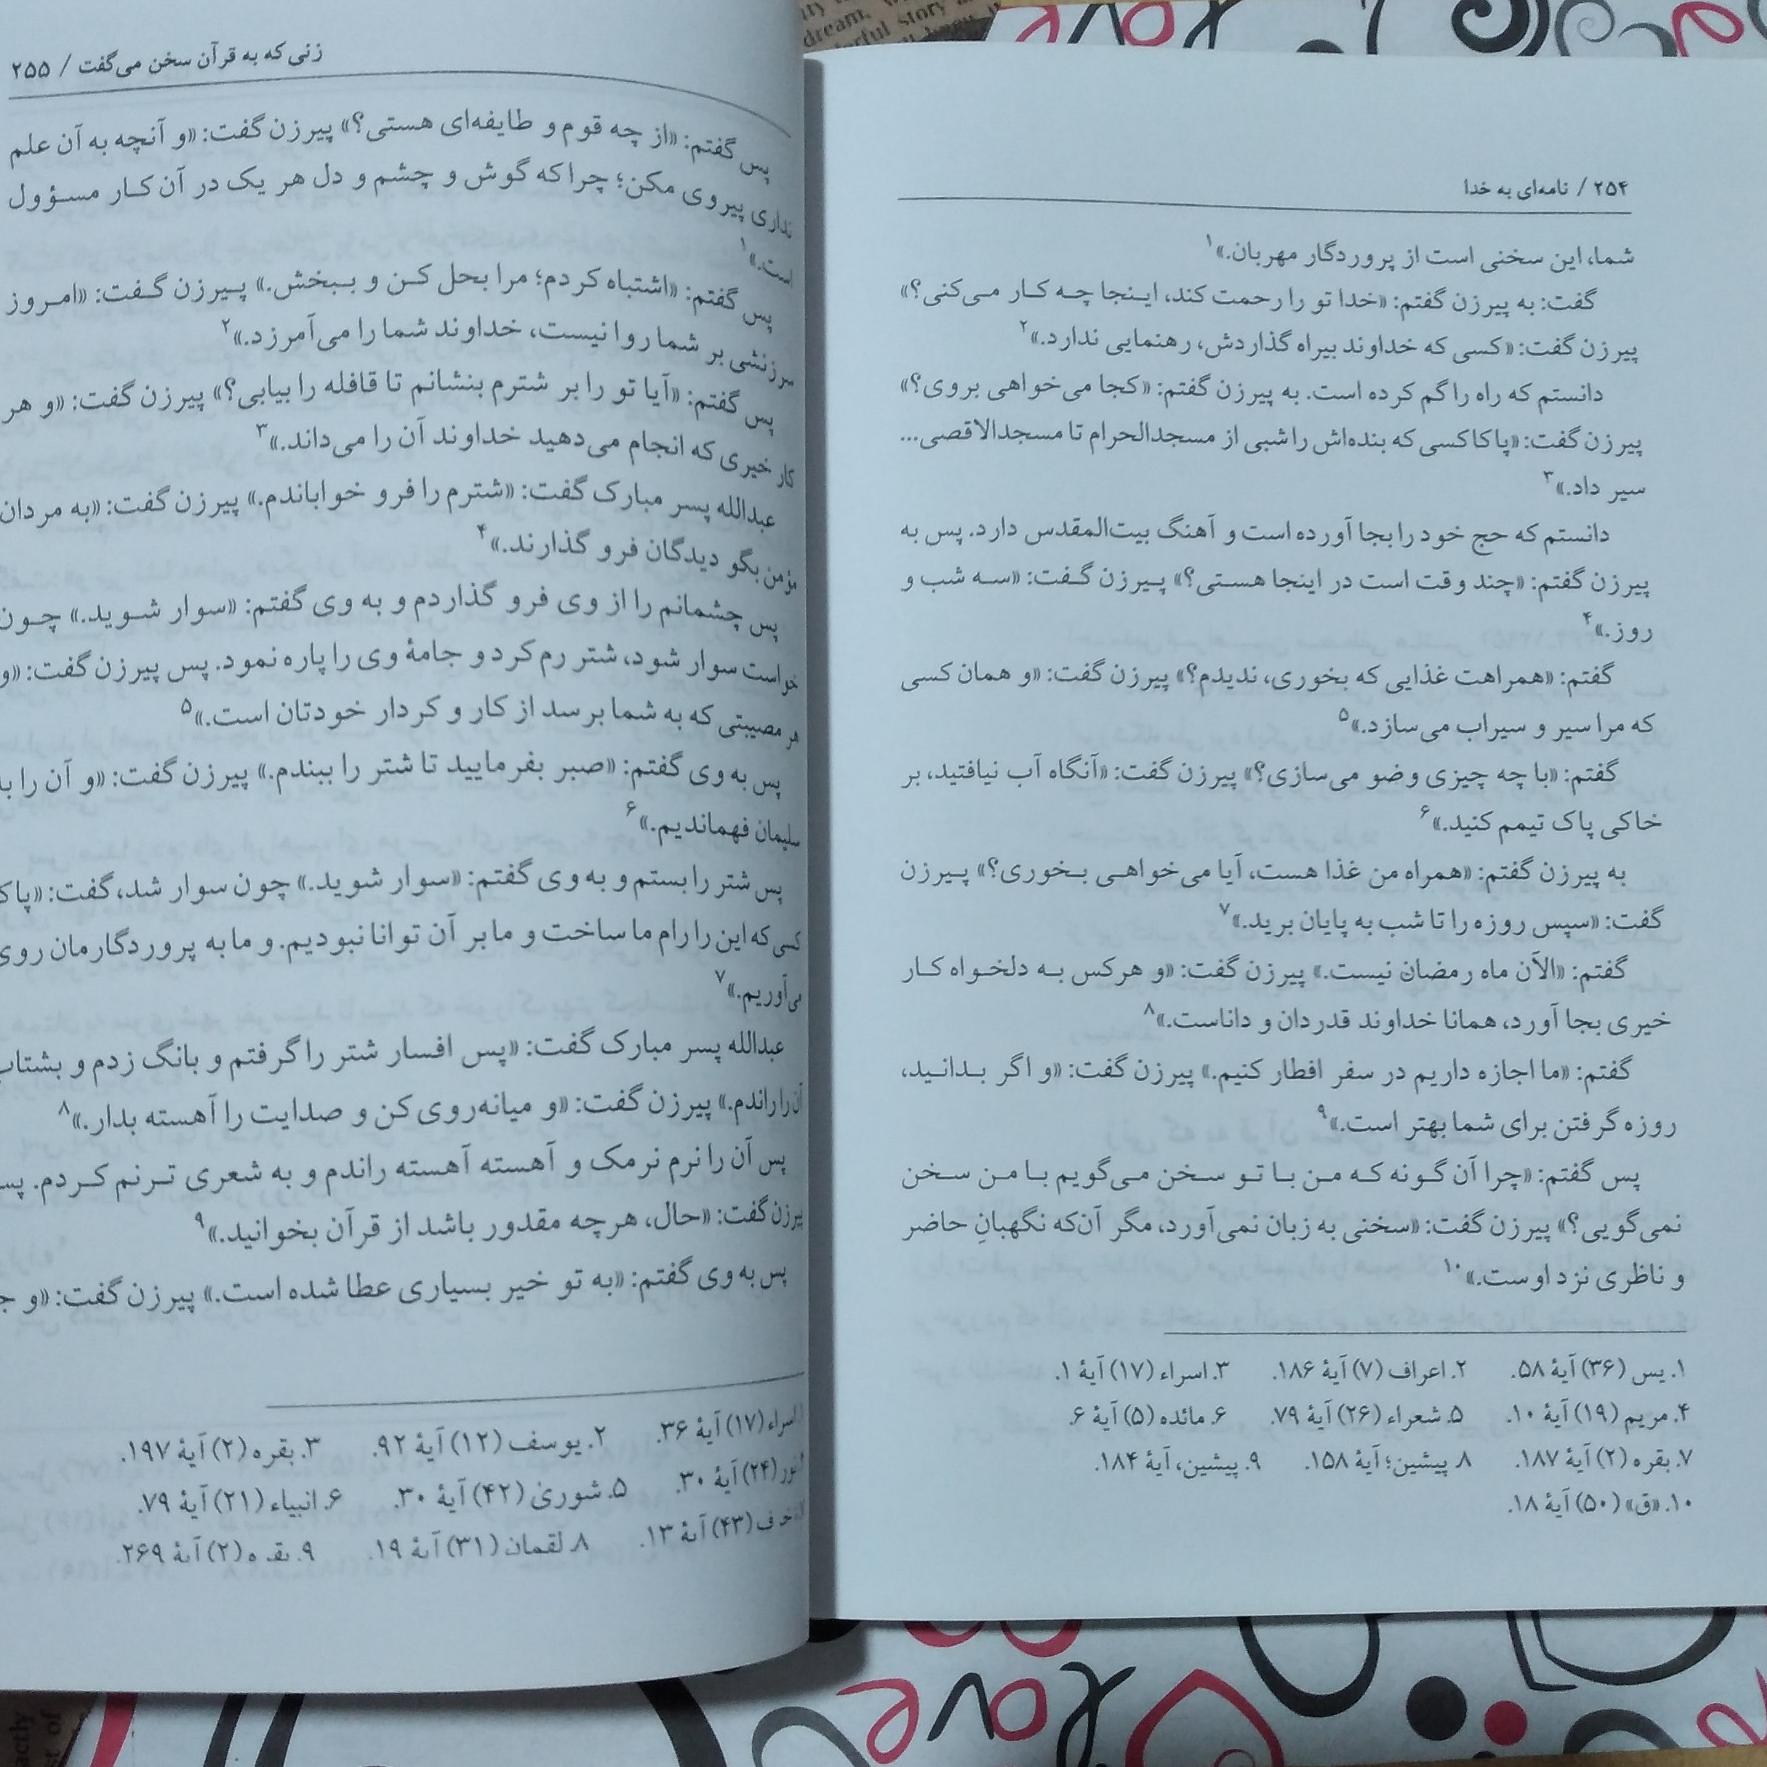 ۲۵۴ / نامه‌ای به خدا
شما، این سخنی است از پروردگار مهربان.»۱
گفت: به پیرزن گفتم: «خدا تو را رحمت کند، اینجا چه کار می‌کنی؟»
پیرزن گفت: «کسی که خداوند بیراه گذاردش، رهنمایی ندارد.»۲
دانستم که راه را گم کرده است. به پیرزن گفتم: «کجا می‌خواهی بروی؟»
پیرزن گفت: «پاکا کسی که بنده‌اش را شبی از مسجدالحرام تا مسجدالاقصی...
سیر داد.»۳
دانستم که حج خود را بجا آورده است و آهنگ بیت‌المقدس دارد. پس به
پیرزن گفتم: «چند وقت است در اینجا هستی؟» پیرزن گفت: «سه شب و
روز.»۴
گفتم: «همراهت غذایی که بخوری، ندیدم؟» پیرزن گفت: «و همان کسی
که مرا سیر و سیراب می‌سازد.»۵
گفتم: «با چه چیزی وضو می‌سازی؟» پیرزن گفت: «آنگاه آب نیافتید، بر
خاکی پاک تیمم کنید.»۶
به پیرزن گفتم: «همراه من غذا هست، آیا می‌خواهی بخوری؟» پیرزن
گفت: «سپس روزه را تا شب به پایان برید.»۷
گفتم: «الآن ماه رمضان نیست.» پیرزن گفت: «و هرکس به دلخواه کار
خیری بجا آورد، همانا خداوند قدردان و داناست.»۸
گفتم: «ما اجازه داریم در سفر افطار کنیم.» پیرزن گفت: «و اگر بدانید،
روزه گرفتن برای شما بهتر است.»۹
پس گفتم: «چرا آن گونه که من با تو سخن می‌گویم با من سخن
نمی‌گویی؟» پیرزن گفت: «سخنی به زبان نمی‌آورد، مگر آن‌که نگهبانِ حاضر
و ناظری نزد اوست.»۱۰
۱. یس (۳۶) آیهٔ ۵۸. ۲. اعراف (۷) آیهٔ ۱۸۶. ۳. اسراء (۱۷) آیهٔ ۱.
۴. مریم (۱۹) آیهٔ ۱۰. ۵. شعراء (۲۶) آیهٔ ۷۹. ۶. مائده (۵) آیهٔ ۶.
۷. بقره (۲) آیهٔ ۱۸۷. ۸. پیشین؛ آیهٔ ۱۵۸. ۹. پیشین، آیهٔ ۱۸۴.
۱۰. «ق» (۵۰) آیهٔ ۱۸.
زنی که به قرآن سخن می‌گفت / ۲۵۵
پس گفتم: «از چه قوم و طایفه‌ای هستی؟» پیرزن گفت: «و آنچه به آن علم
نداری پیروی مکن؛ چرا که گوش و چشم و دل هر یک در آن کار مسؤول
است.»۱
پس گفتم: «اشتباه کردم؛ مرا بحل کن و ببخش.» پیرزن گفت: «امروز
سرزنشی بر شما روا نیست، خداوند شما را می‌آمرزد.»۲
پس گفتم: «آیا تو را بر شترم بنشانم تا قافله را بیابی؟» پیرزن گفت: «و هر
کار خیری که انجام می‌دهید خداوند آن را می‌داند.»۳
عبدالله پسر مبارک گفت: «شترم را فرو خواباندم.» پیرزن گفت: «به مردان
مؤمن بگو دیدگان فرو گذارند.»۴
پس چشمانم را از وی فرو گذاردم و به وی گفتم: «سوار شوید.» چون
خواست سوار شود، شتر رم کرد و جامهٔ وی را پاره نمود. پس پیرزن گفت: «و
هر مصیبتی که به شما برسد از کار و کردار خودتان است.»۵
پس به وی گفتم: «صبر بفرمایید تا شتر را ببندم.» پیرزن گفت: «و آن را به
سلیمان فهماندیم.»۶
پس شتر را بستم و به وی گفتم: «سوار شوید.» چون سوار شد، گفت: «پاکا
کسی که این را رام ما ساخت و ما بر آن توانا نبودیم. و ما به پروردگارمان روی
می‌آوریم.»۷
عبدالله پسر مبارک گفت: «پس افسار شتر را گرفتم و بانگ زدم و بشتاب
آن را راندم.» پیرزن گفت: «و میانه‌روی کن و صدایت را آهسته بدار.»۸
پس آن را نرم نرمک و آهسته آهسته راندم و به شعری ترنم کردم. پس
پیرزن گفت: «حال، هرچه مقدور باشد از قرآن بخوانید.»۹
پس به وی گفتم: «به تو خیر بسیاری عطا شده است.» پیرزن گفت: «و
اسراء (۱۷) آیهٔ ۳۶. ۲. یوسف (۱۲) آیهٔ ۹۲. ۳. بقره (۲) آیهٔ ۱۹۷.
نور (۲۴) آیهٔ ۳۰. ۵. شوری (۴۲) آیهٔ ۳۰. ۶. انبیاء (۲۱) آیهٔ ۷۹.
(۴۳) آیهٔ ۱۳. ۸. لقمان (۳۱) آیهٔ ۱۹. ۹. بقره (۲) آیهٔ ۲۶۹.
dream.
story
love